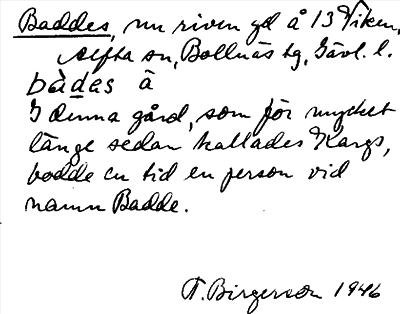 Baddes, nu riven gd å 13 Viken,
Alfta sn, Bollnäs tg, Gävl. l.
bàdas â
I denna gård, som för mycket
länge sedan kallades Kargs,
bodde en tid en person vid
namn Badde.
T. Birgerson 1946